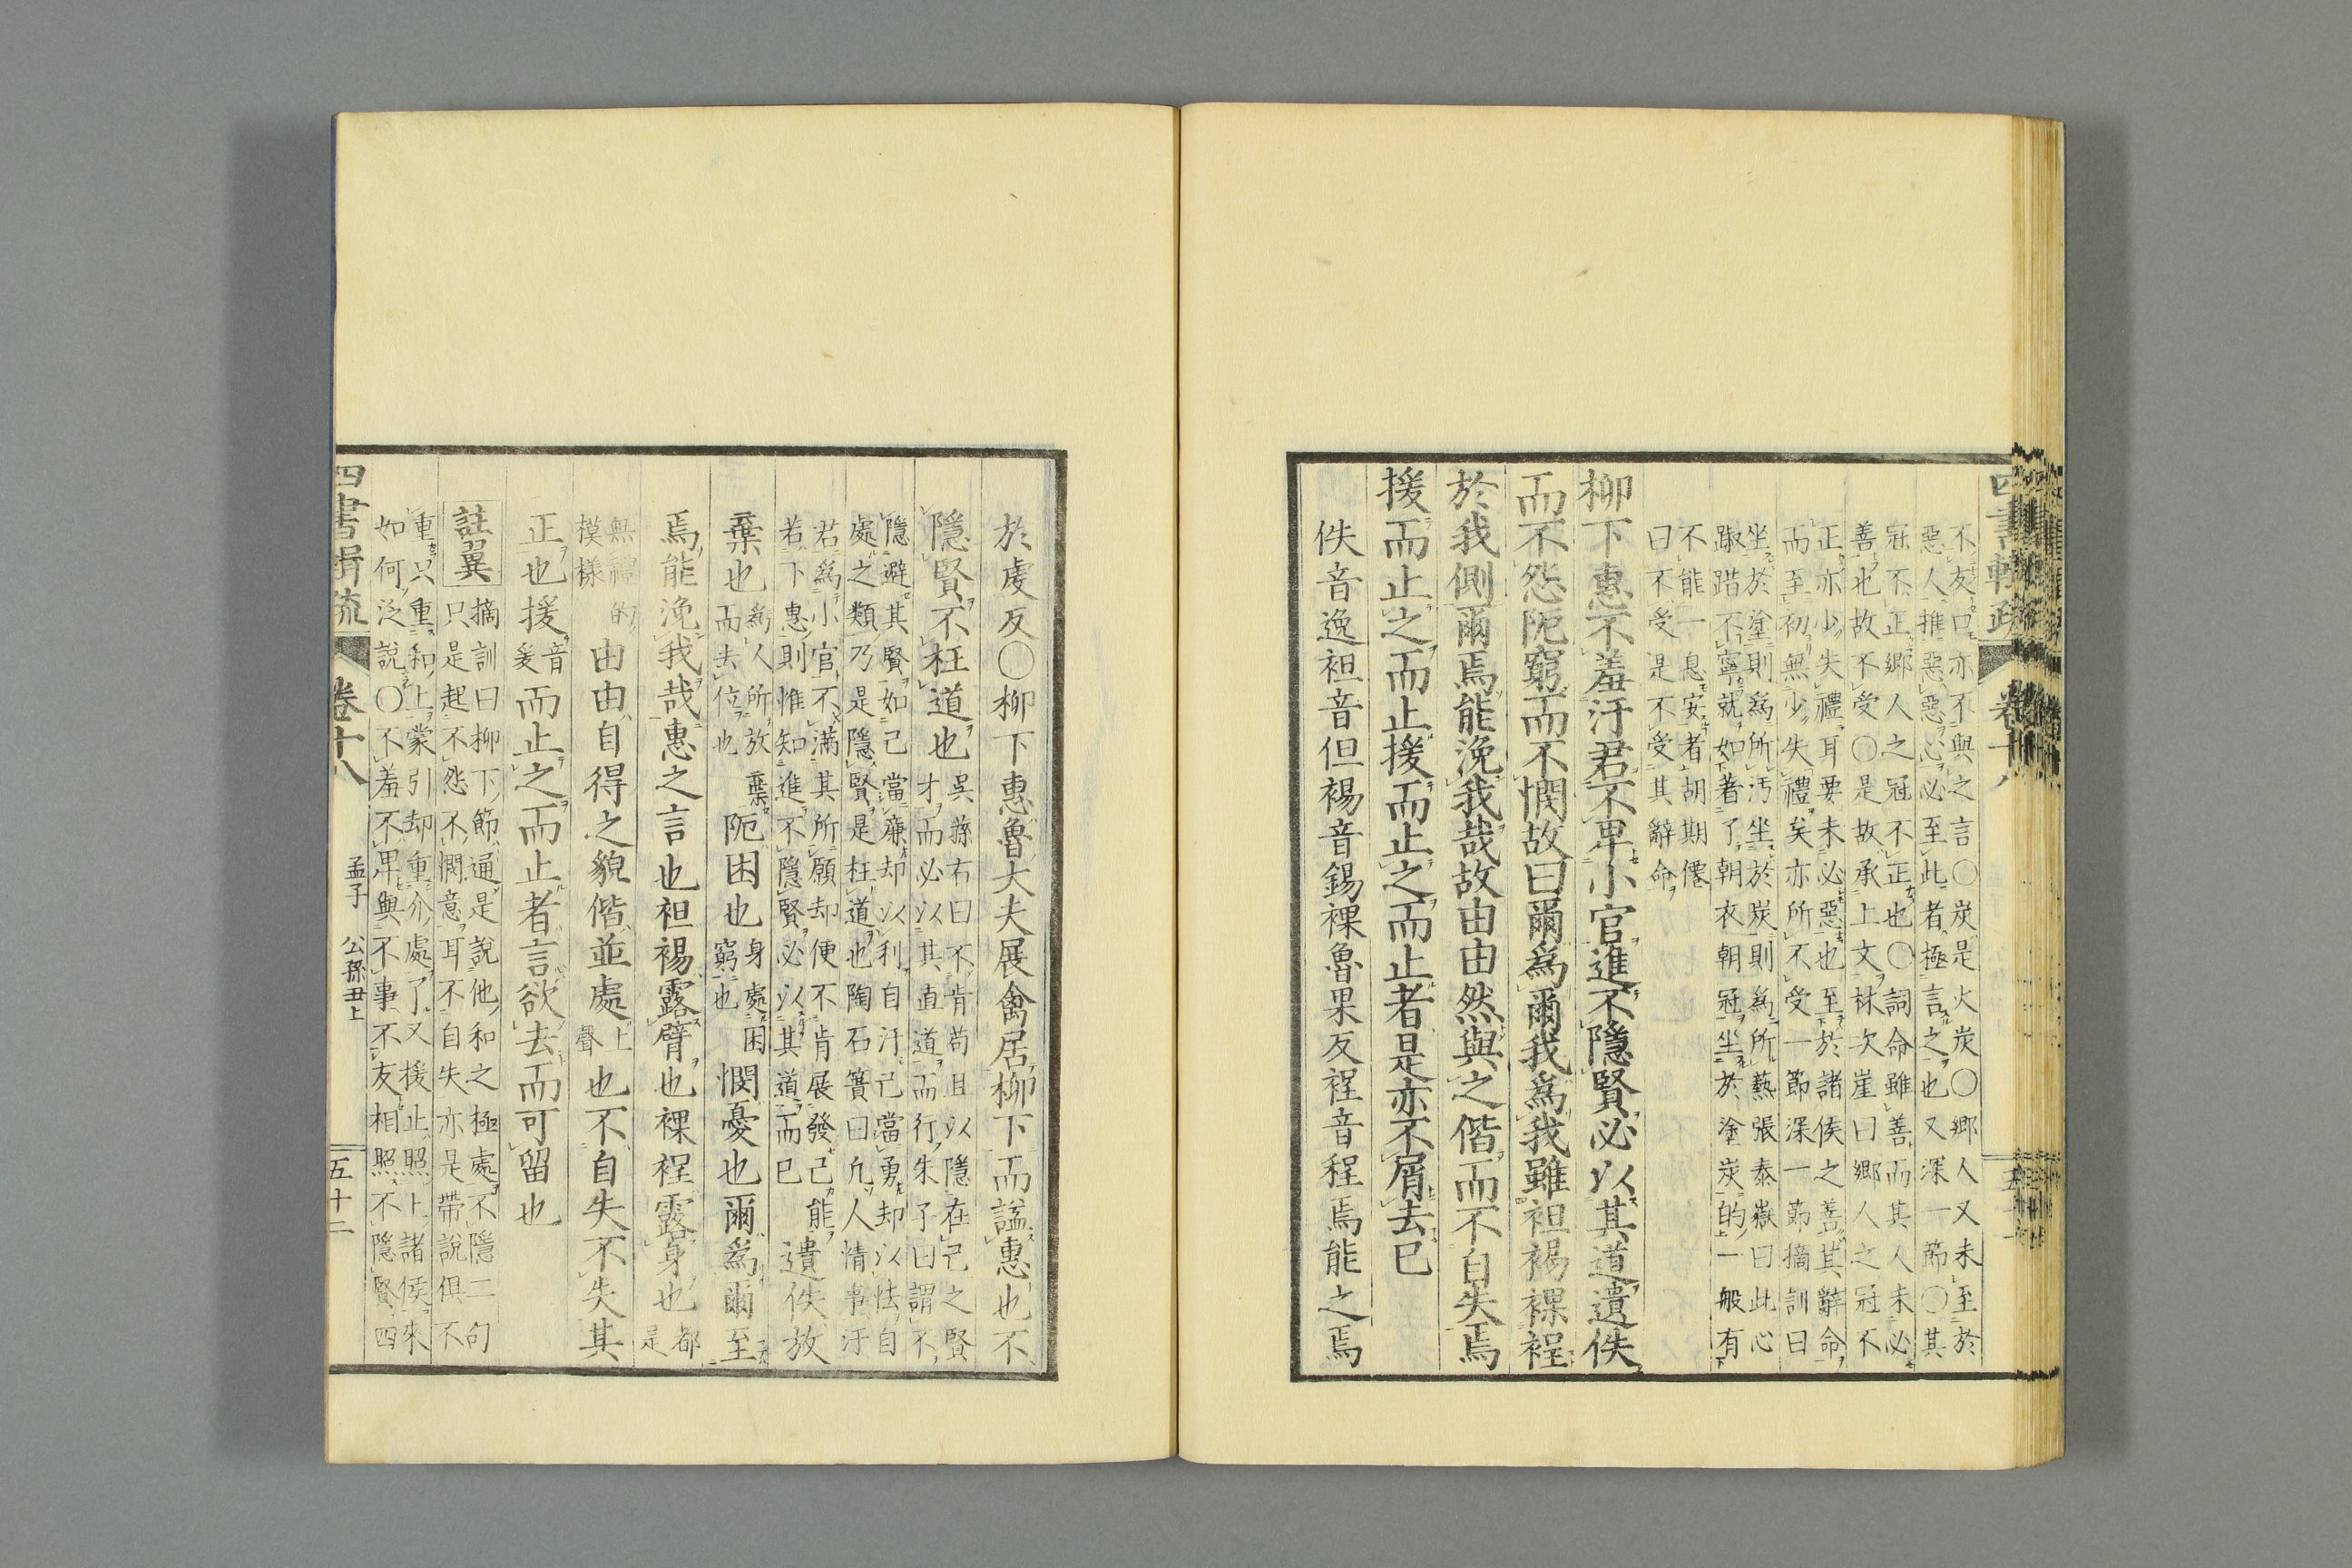 不友口亦不與之言〇炭是火炭〇鄉人又未至於
惡人推惡惡心必至此者極言之也又深一節〇其
冠不正鄉人之冠不正也〇詞命雖善而其人未必
善也故不受〇是故承上文林次崖曰鄉人之冠不
正亦少失禮耳要未必惡也至於諸侯之善其辭命
而至初無少失禮矣亦所不受一節深一節摘訓曰
坐於塗則為所汚坐於炭則為所熱張泰嶽曰此心
踧踖不寧就如著了朝衣朝冠坐於塗炭的一般有
不能一息安者胡期僊
曰不受是不受其辭命
柳下惠不羞汙君不卑小官進不隱賢必以其道遺佚
而不怨阨窮而不憫故曰爾為爾我為我雖袒裼裸裎
於我側爾焉能浼我哉故由由然與之偕而不自失焉
援而止之而止援而止之而止者是亦不屑去已
佚音逸袒音但裼音錫裸魯果反裎音程焉能之焉
於虔反〇柳下惠魯大夫展禽居柳下而謚惠也不
隱賢不枉道也
吳蓀右曰不肯苟且以隱在己之賢
才而必以其直道而行朱子曰謂不
隱避其賢如己當廉却以利自汙己當勇却以怯自
處之類乃是隱賢是枉道也陶石簣曰凡人情事汙
君為小官不滿其所願却便不肯展發己能
若下惠則惟知進不隱賢必以其道而已
遺佚放
棄也
為人所放棄
而去位也
阨困也
身處困
窮也
憫憂也爾為爾至
焉能浼我哉惠之言也袒裼露臂也裸裎露身也
都是
無禮的
模樣
由由自得之貌偕並處
上
聲
也不自失不失其
正也援
音
爰
而止之而止者言欲去而可留也
註翼
摘訓曰柳下節通是說他和之極處不隱二句
只是起不怨不憫意耳不自失亦是帶說俱不
重只重和上蒙引却重介處了又援止照上諸侯來
如何泛說〇不羞不卑與不事不友相照不隱賢四
四書輯疏
卷十八
孟子
公孫丑上
五十二